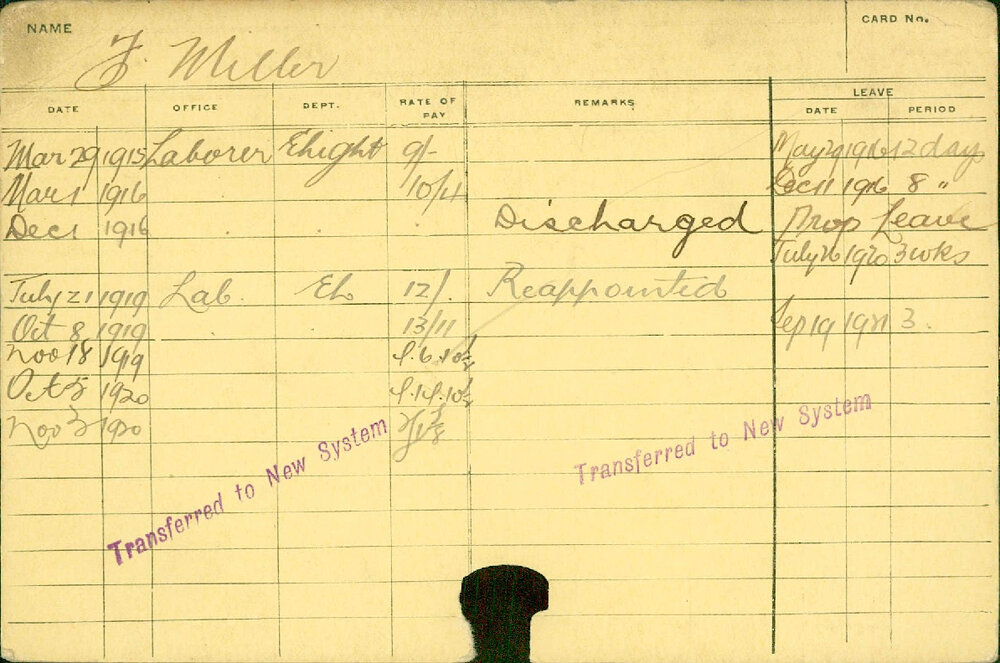 NAME F. Miller CARD No.
DATE OFFICE DEPT. RATE OF PAY REMARKS LEAVE DATE PERIOD
Mar 29 1915 Laborer Elight 9/- May 29 1916 12 days
Mar 1 1916 10/4 Dec 11 1916 8 "
Dec 1 1916 Discharged Prop Leave
July 26 1920 3 wks
July 21 1919 Lab. El. 12/. Reappointed
Oct 8 1919 13/11 Sep 19 1921 3.
Nov 18 1919
Oct 5 1920
Nov 3 1920
Transferred to New System
Transferred to New System